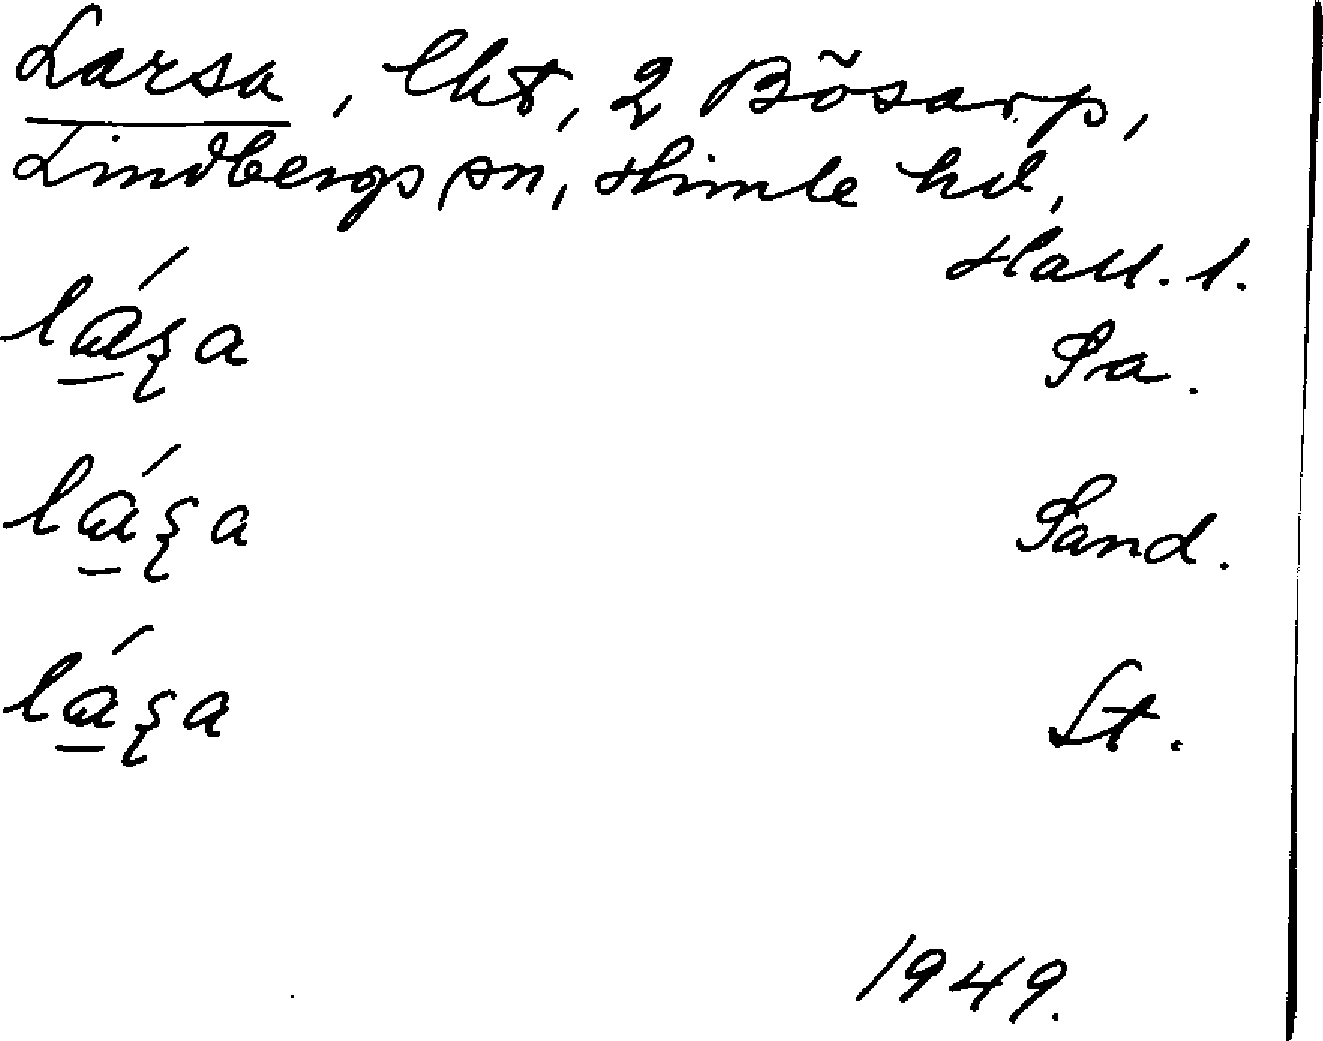 Larsa, lht, 2 Bösarp,
Lindbergs sn, Himle hd,
Hall. l.
lá̱ʂa Sa.
lá̱ʂa Sand.
lá̱ʂa St.
1949.